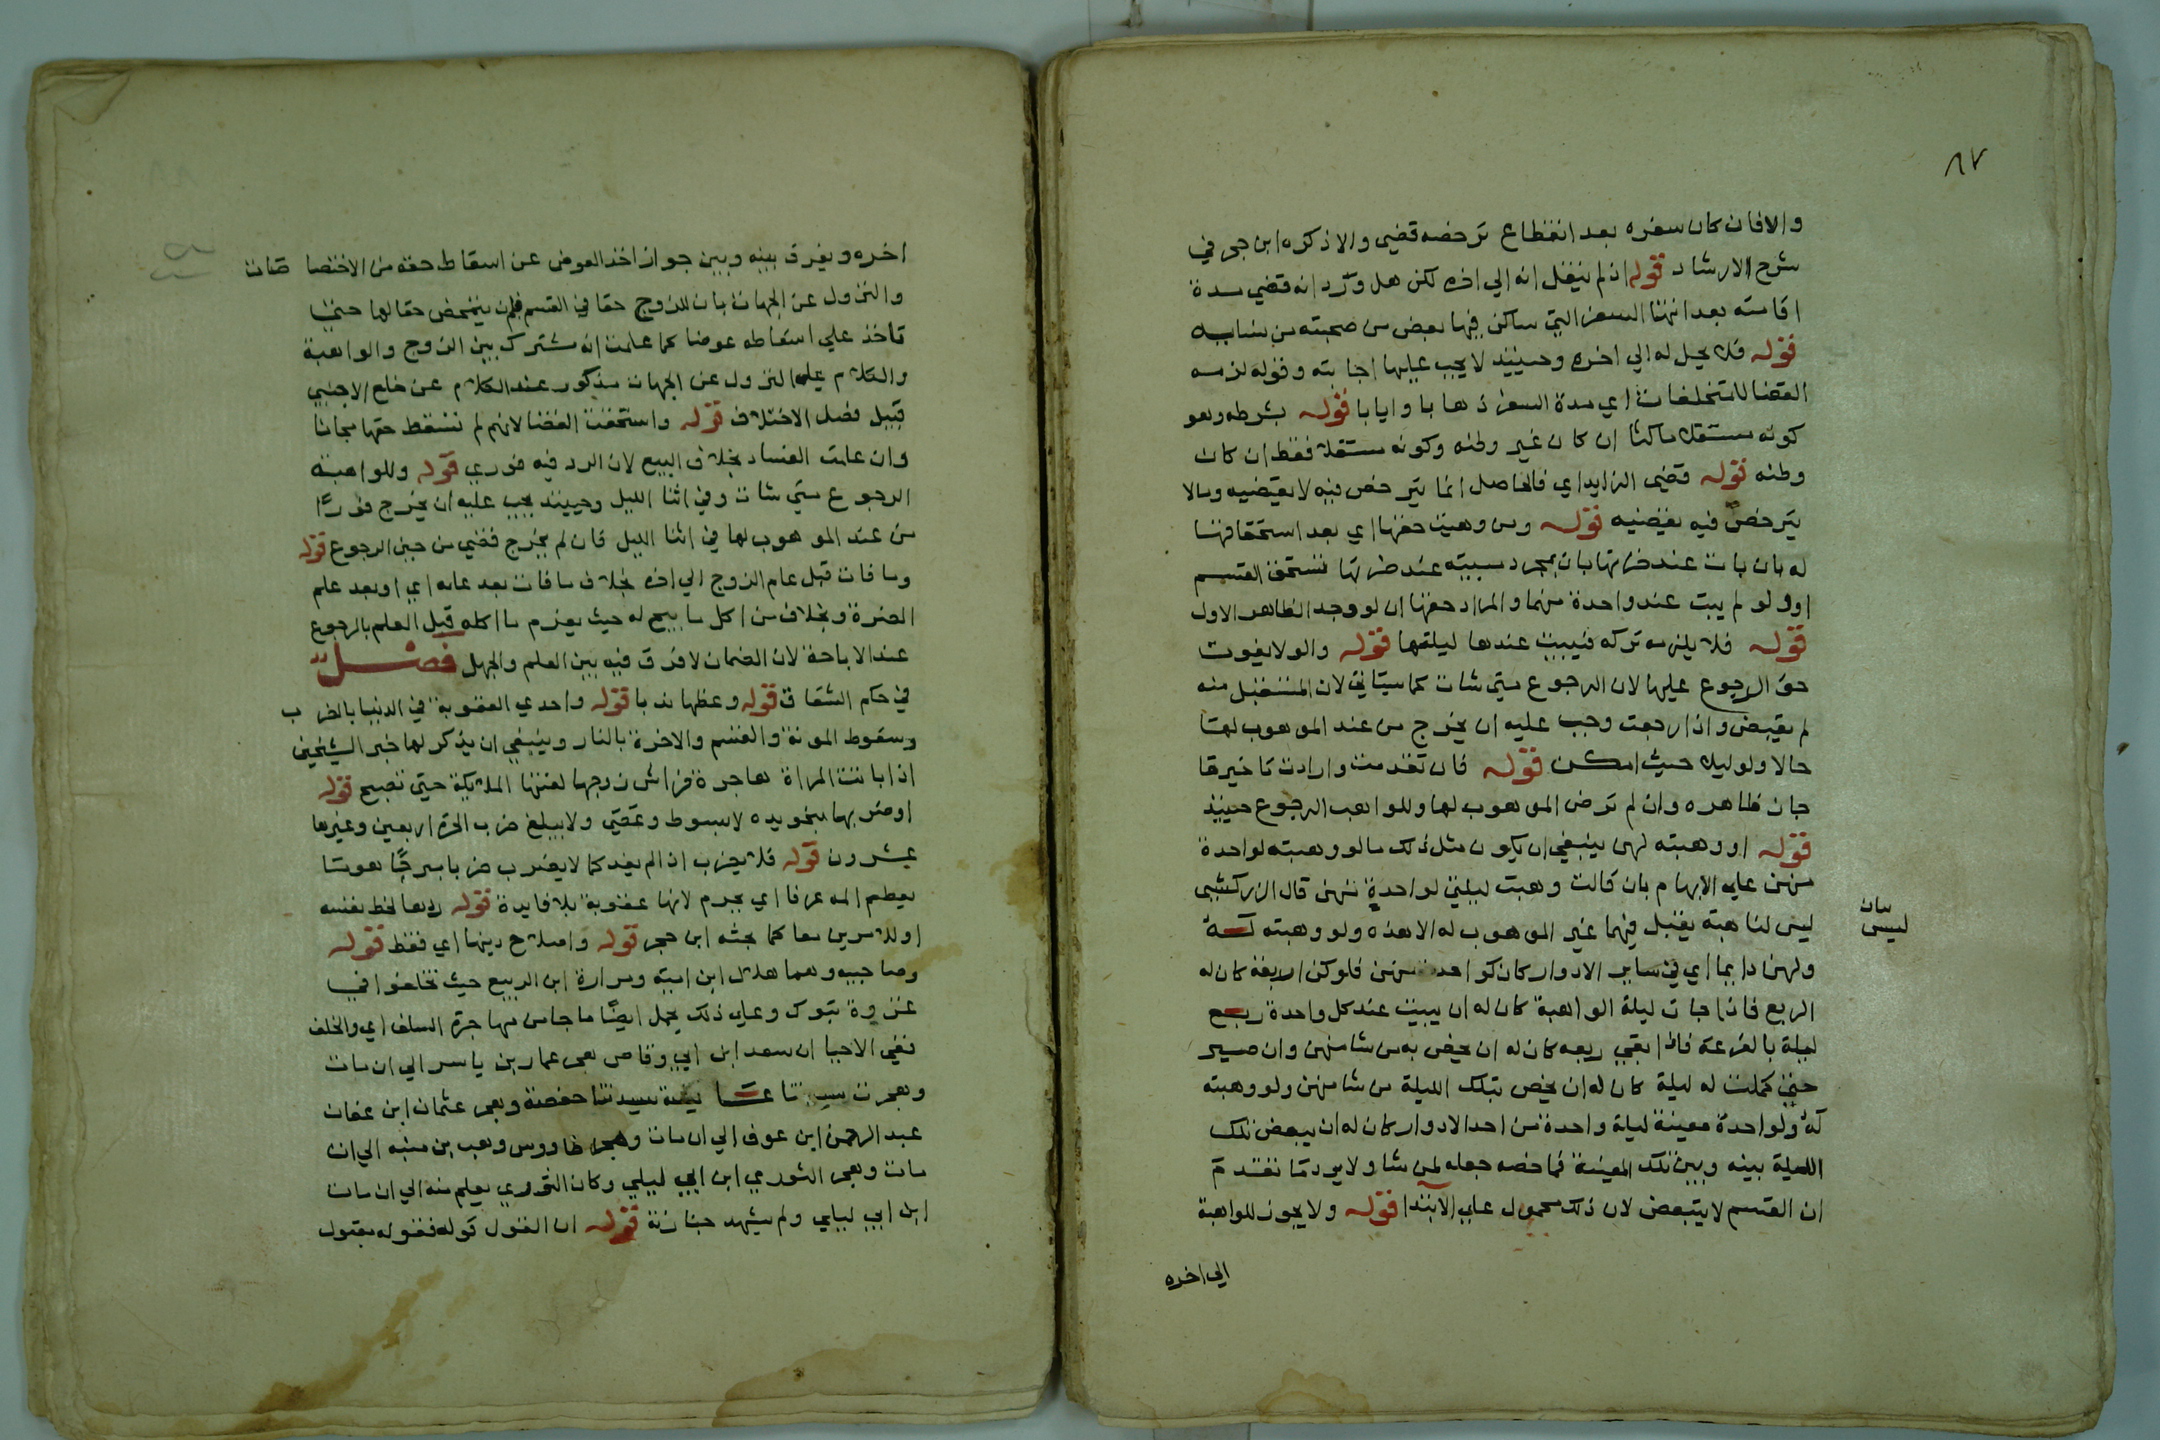 ٨٧
والا فان كان سفره بعد انقطاع ترخصه قضي والا ذكره ابن حجر في
شرح الارشاد قوله اذ لم ينقل انه الي اخره لكن هل ورد انه قضي مدة
اقامته بعد انتها السفر التي ساكن فيها بعض من صحبته من نسايه
قوله فلا يحل له الي اخره وحينيذ لا يجب عليها اجابته وقوله لزمه
القضا للمتخلفات اي مدة السفر ذهابا وايابا قوله بشرطه وهو
كونه مستقلا ماكثا ان كان غير وطنه وكونه مستقلا فقط ان كان
وطنه قوله قضي الزايد اي فالحاصل انما يترخص فيه لا يقضيه وما لا
يترخص فيه يقضيه قوله ومن وهبت حقها اي بعد استحقاقها
له بان بات عند ضرتها بان بمجرد مبيته عند ضرتها تستحق القسم
او ولو لم يبت عند واحدة منهما والمراد حقها ان لو وجد الظاهر الاول
قوله فلا يلزمه تركه فيبيت عندها ليلتهما قوله والولا يفوت
حق الرجوع عليها لان الرجوع متي شات كما سياتي لان المستقبل منه
لم يقبض واذا رجعت وجب عليه ان يخرج من عند الموهوب لها
حالا ولو ليلا حيث امكن قوله فان تقدمت وارادت تاخيرها
جاز ظاهره وان لم ترض الموهوب لها وللواهب الرجوع حينيذ
قوله او وهبته لهن ينبغي ان يكون مثل ذلك ما لو وهبته لواحدة
منهن علي الابهام بان قالت وهبت ليلتي لواحدة منهن قال الزركشي
ليس لنا هبة يقبل فيها غير الموهوب له الا هذه ولو وهبته له
بيان
ليس
ولهن دايما اي في ساير الادوار كان كواحدة منهن فلو كن اربعة كان له
الربع فاذا جات ليلة الواهبة كان له ان يبيت عند كل واحدة ربع
ليلة بالقرعة فاذا بقي ربعه كان له ان يخص به من شا منهن وان صبر
حتي كملت له ليلة كان له ان يخص بتلك الليلة من شا منهن ولو وهبته
له ولواحدة معينة ليلة واحدة من احد الادوار كان له ان يبعض تلك
الليلة بينه وبين تلك المعينة فما خصه جعله لمن شا ولا يرد ما تقدم
ان القسم لا يتبعض لان ذلك محمول علي الابتدا قوله ولا يجوز للواهبة
الي اخره
اخره ويفرق بينه وبين جواز اخذ العوض عن اسقاط حقه من الاختصاصات
والنزول عن الجهات بان للزوج حقا في القسم فلم يتمحض حقا لها حتي
تاخذ علي اسقاطه عوضا كما علمت انه مشترك بين الزوج والواهبة
والكلام علي النزول عن الجهات مذكور عند الكلام عن خلع الاجنبي
قبيل فصل الاختلاف قوله واستحقت القضا لانهم لم تسقط حقها مجانا
وان علمت الفساد بخلاف البيع لان الرد فيه فوري قوله وللواهبة
الرجوع متي شات وفي اثنا الليل وحينيذ يجب عليه ان يخرج فورا
من عند الموهوب لها في اثنا الليل فان لم يخرج قضي من حين الرجوع قوله
وما فات قبل علم الزوج الي اخره بخلاف ما فات بعد علمه اي او بعد علم
الضرة وبخلاف من اكل ما ابيح له حيث يغرم ما اكله قبل العلم بالرجوع
عند الاباحة لان الضمان لا فرق فيه بين العلم والجهل فصل
في حكم الشقاق قوله وعظها ندبا قوله واحدي العقوبة في الدنيا بالضرب
وسقوط المونة والقسم والاخرة بالنار وينبغي ان يذكر لها خبر الشيخين
اذا باتت المراة هاجرة فراش زوجها لعنتها الملايكة حتي تصبح قوله
او ضربها بنحو يده لا بسوط وعصي ولا يبلغ ضرب الحرة اربعين وغيرها
عشرون قوله فلا يضرب ان لم يفد كما لا يضرب ضربا مبرحا هو ما
يعظم المه عرفا اي يحرم لانها عقوبة بلا فايدة قوله ردها لحظ نفسه
او للامرين معا كما بحثه ابن حجر قوله واصلاح دينها اي فقط قوله
وصاحبيه وهما هلال ابن امية ومرارة ابن الربيع حيث تخلفوا في
غزوة تبوك وعلي ذلك يحمل ايضا ما جا من مهاجرة السلف اي والخلف
نفي الاحيا ان سعد ابن ابي وقاص هجر عمار بن ياسر الي ان مات
وهجرت سيدتنا عايشة سيدتنا حفصة وهجر عثمان ابن عفان
عبد الرحمن ابن عوف الي ان مات وهجر طاووس وهب بن منبه الي ان
مات وهجر الثوري ابن ابي ليلي وكان الثوري يعلم منه الي ان مات
ابن ابي ليلي ولم يشهد جنازته قوله ان القول قوله فقوله بقبول